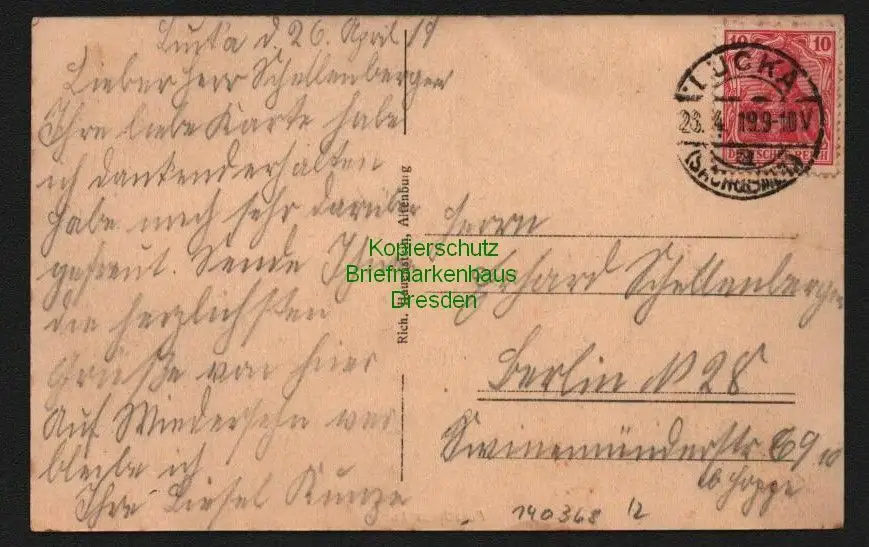 Lucka d. 26. April 19
Lieber Herr Schellenberger
Ihre liebe Karte habe
ich dankend erhalten
habe mich sehr darüber
gefreut. Sende Ihnen
die herzlichsten
Grüße von hier
Auf Wiedersehn
bleibe ich
Ihre Liesel Kunze
Rich. Hauenstein, Altenburg
10 10
DEUTSCHES REICH
LUCKA
26.4.19.9-10V
(SACHS.-ALTENB.)
Herrn
Erhard Schellenberger
Berlin N 28
Swinemünderstr 69
b/ Hoppe
140368 12
Kopierschutz
Briefmarkenhaus
Dresden